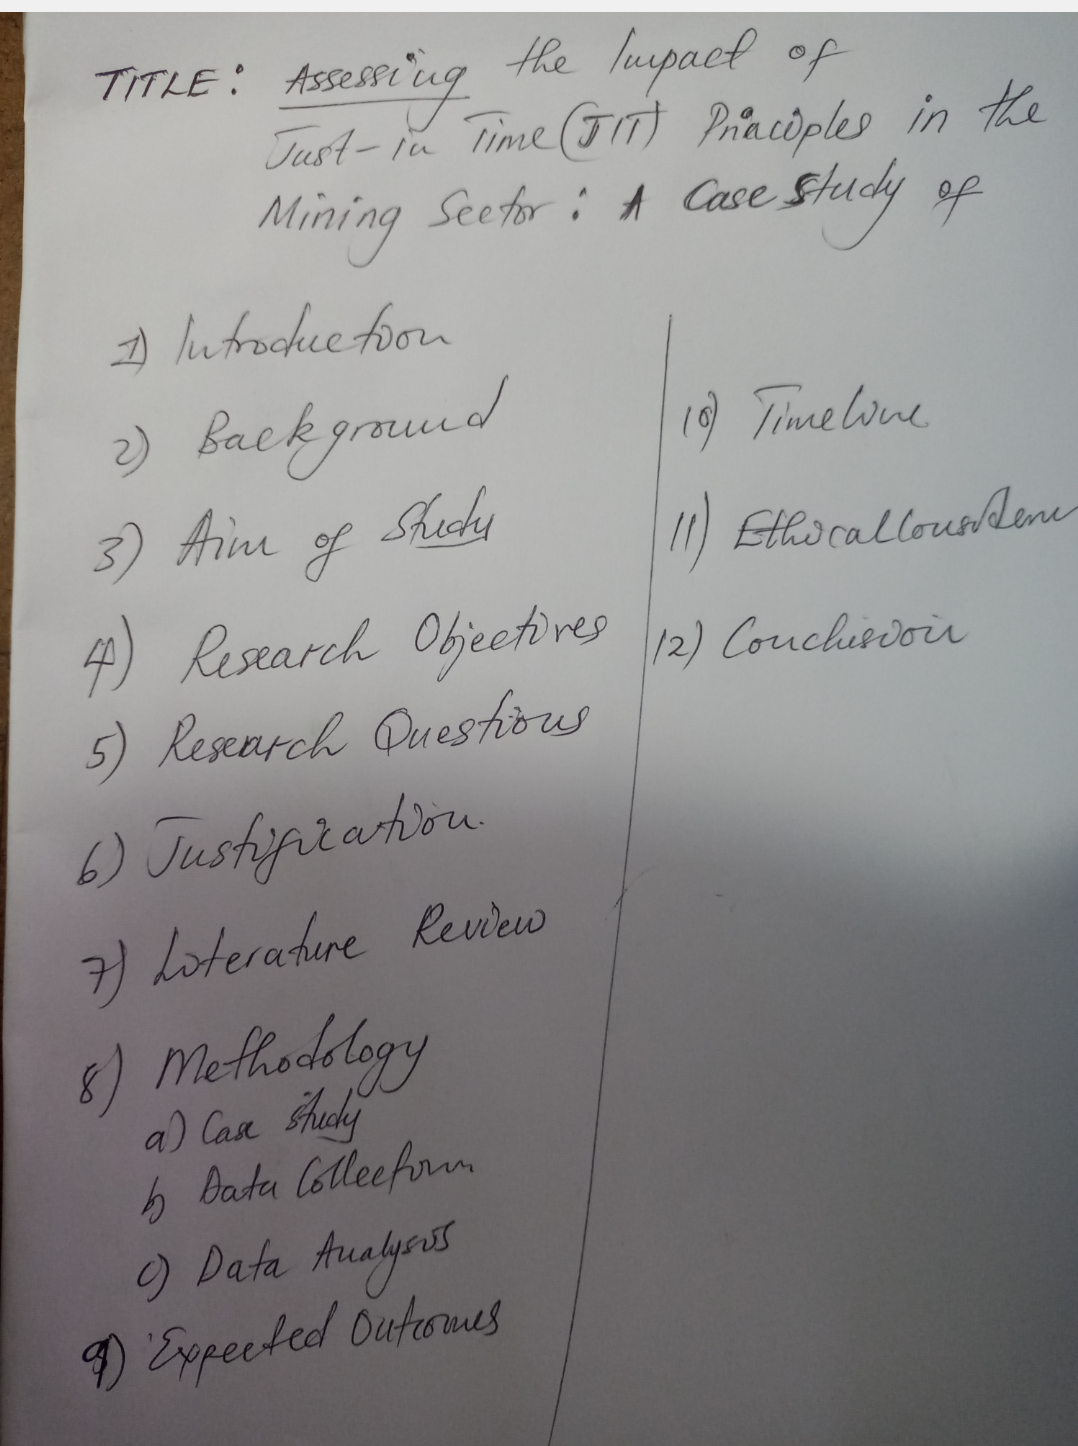 TITLE: Assessing the Impact of
Just-in Time (JIT) Principles in the
Mining Sector: A Case Study of
1) Introduction
2) Background
3) Aim of Study
4) Research Objectives
5) Research Questions
6) Justification.
7) Literature Review
8) Methodology
a) Case study
b) Data Collection
c) Data Analysis
9) Expected Outcomes
10) Timeline
11) Ethical
12) Conclusion